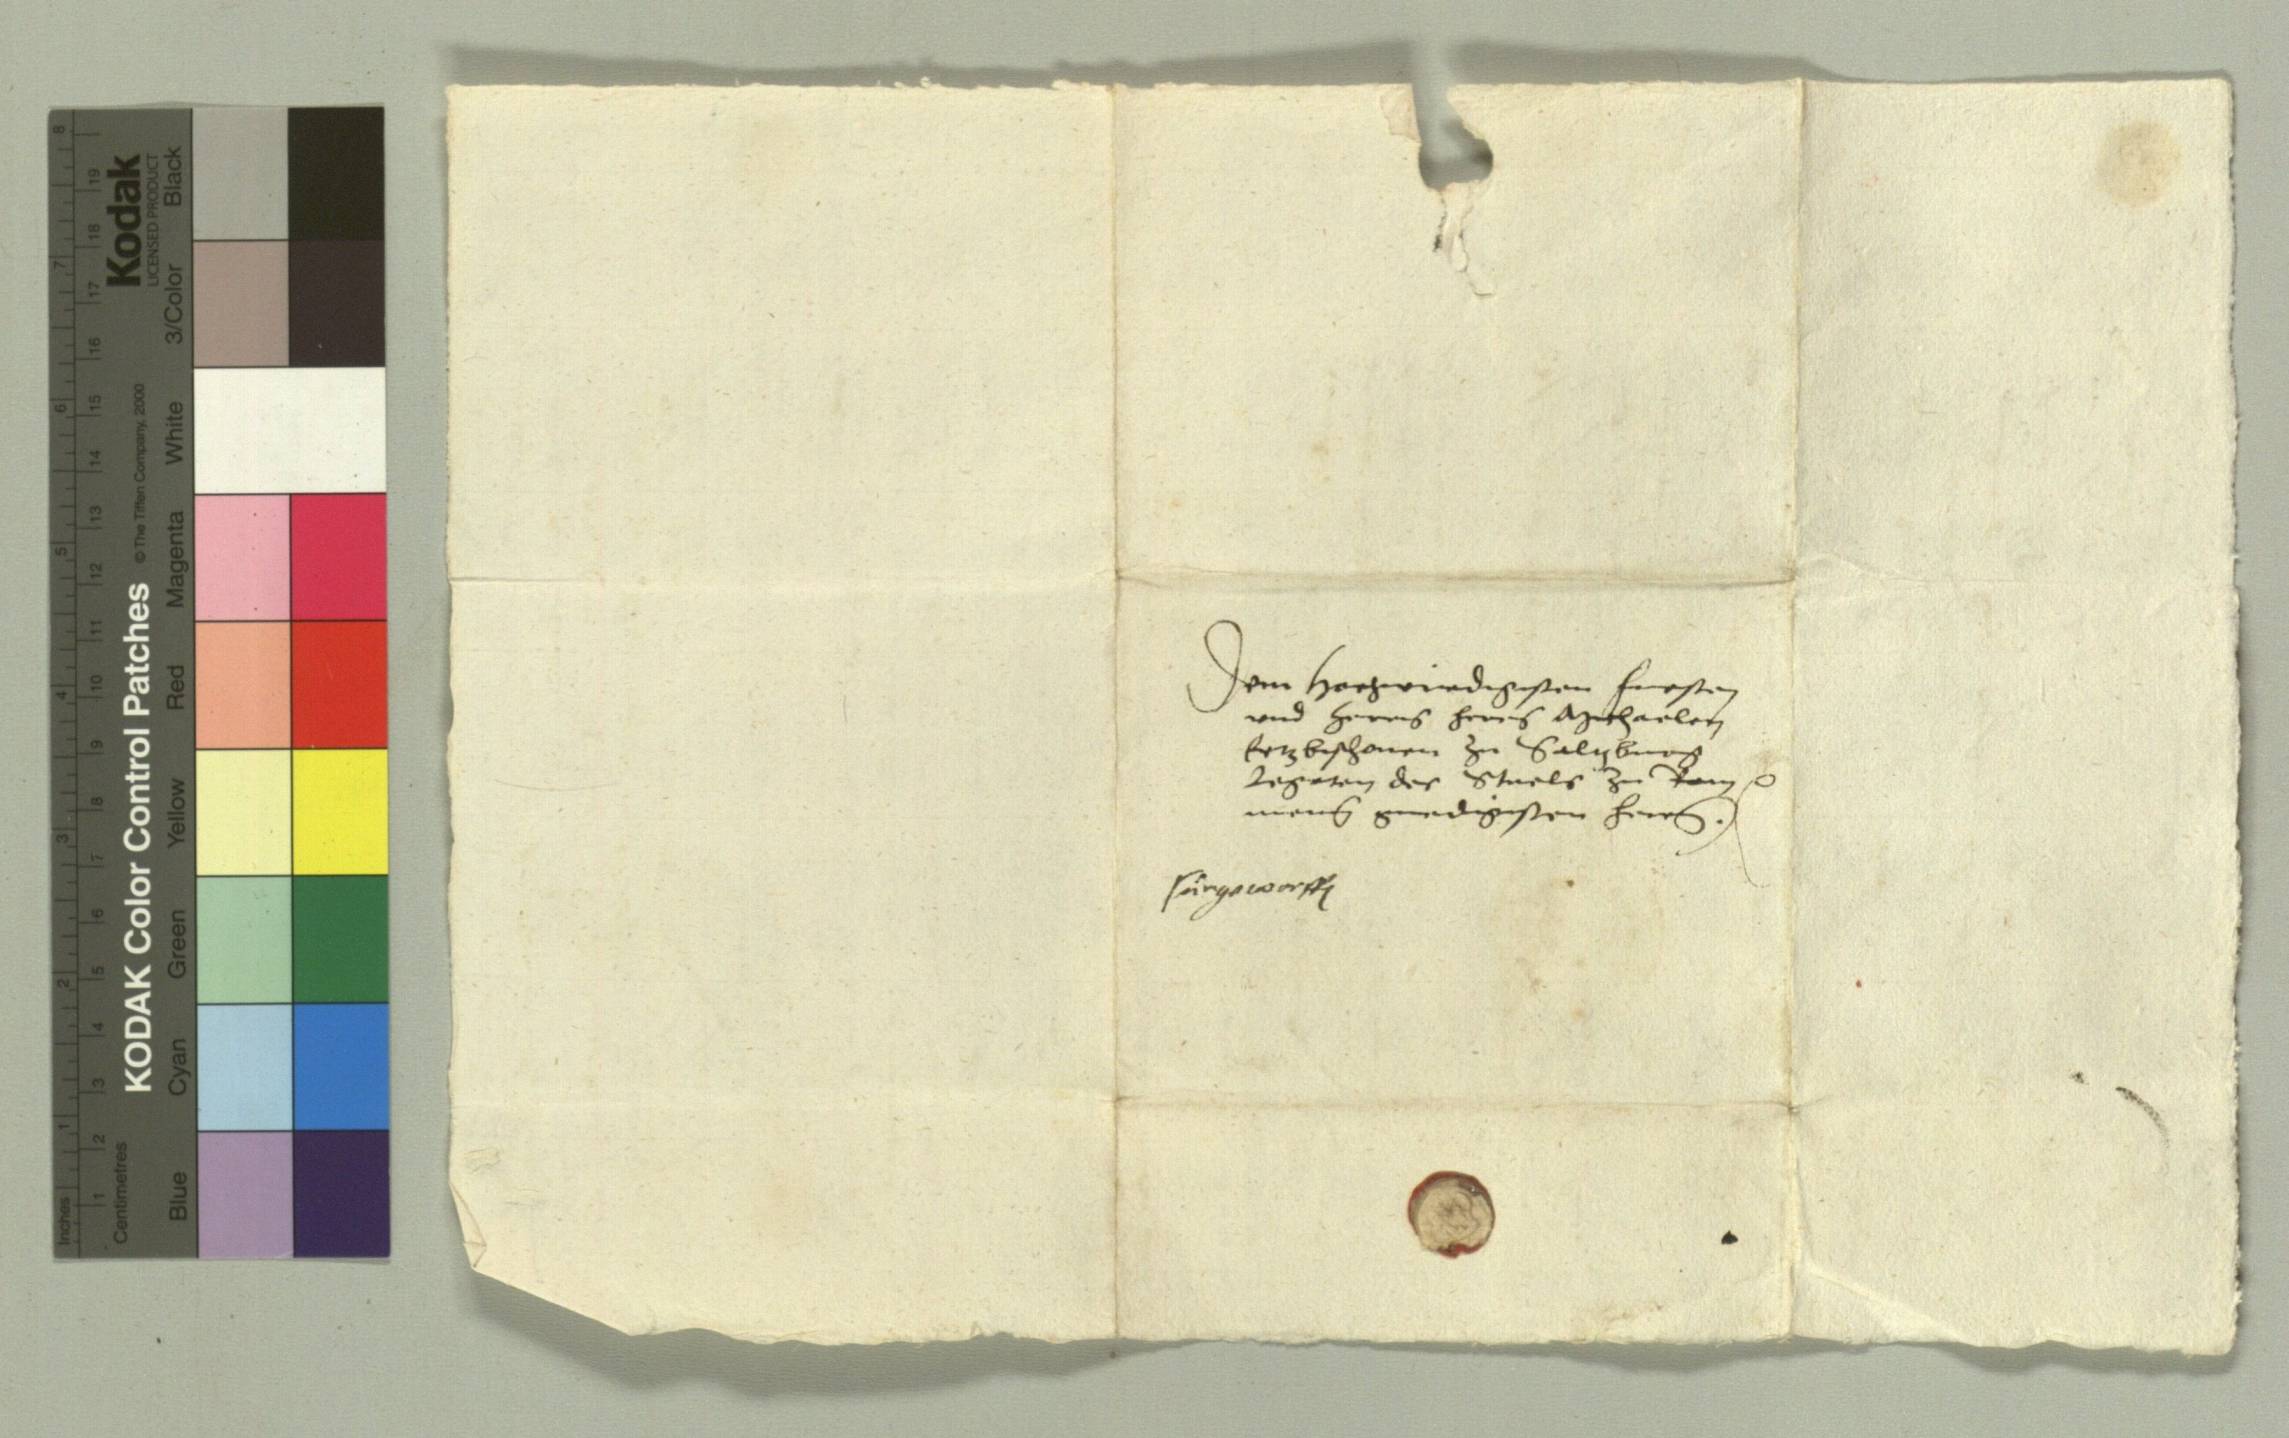 Dem Hochwirdigisten Fursten
vnd Herrn Herrn Michaelen
Ertzbischouen zu Saltzburg
Legaten des Stuels zu Rom
meinem gnedigisten Herrn.
fürgeworffen
KODAK Color Control Patches © The Tiffen Company, 2000
Kodak
LICENSED PRODUCT
Blue Cyan Green Yellow Red Magenta White 3/Color Black
Centimetres 1 2 3 4 5 6 7 8 9 10 11 12 13 14 15 16 17 18 19
Inches 1 2 3 4 5 6 7 8